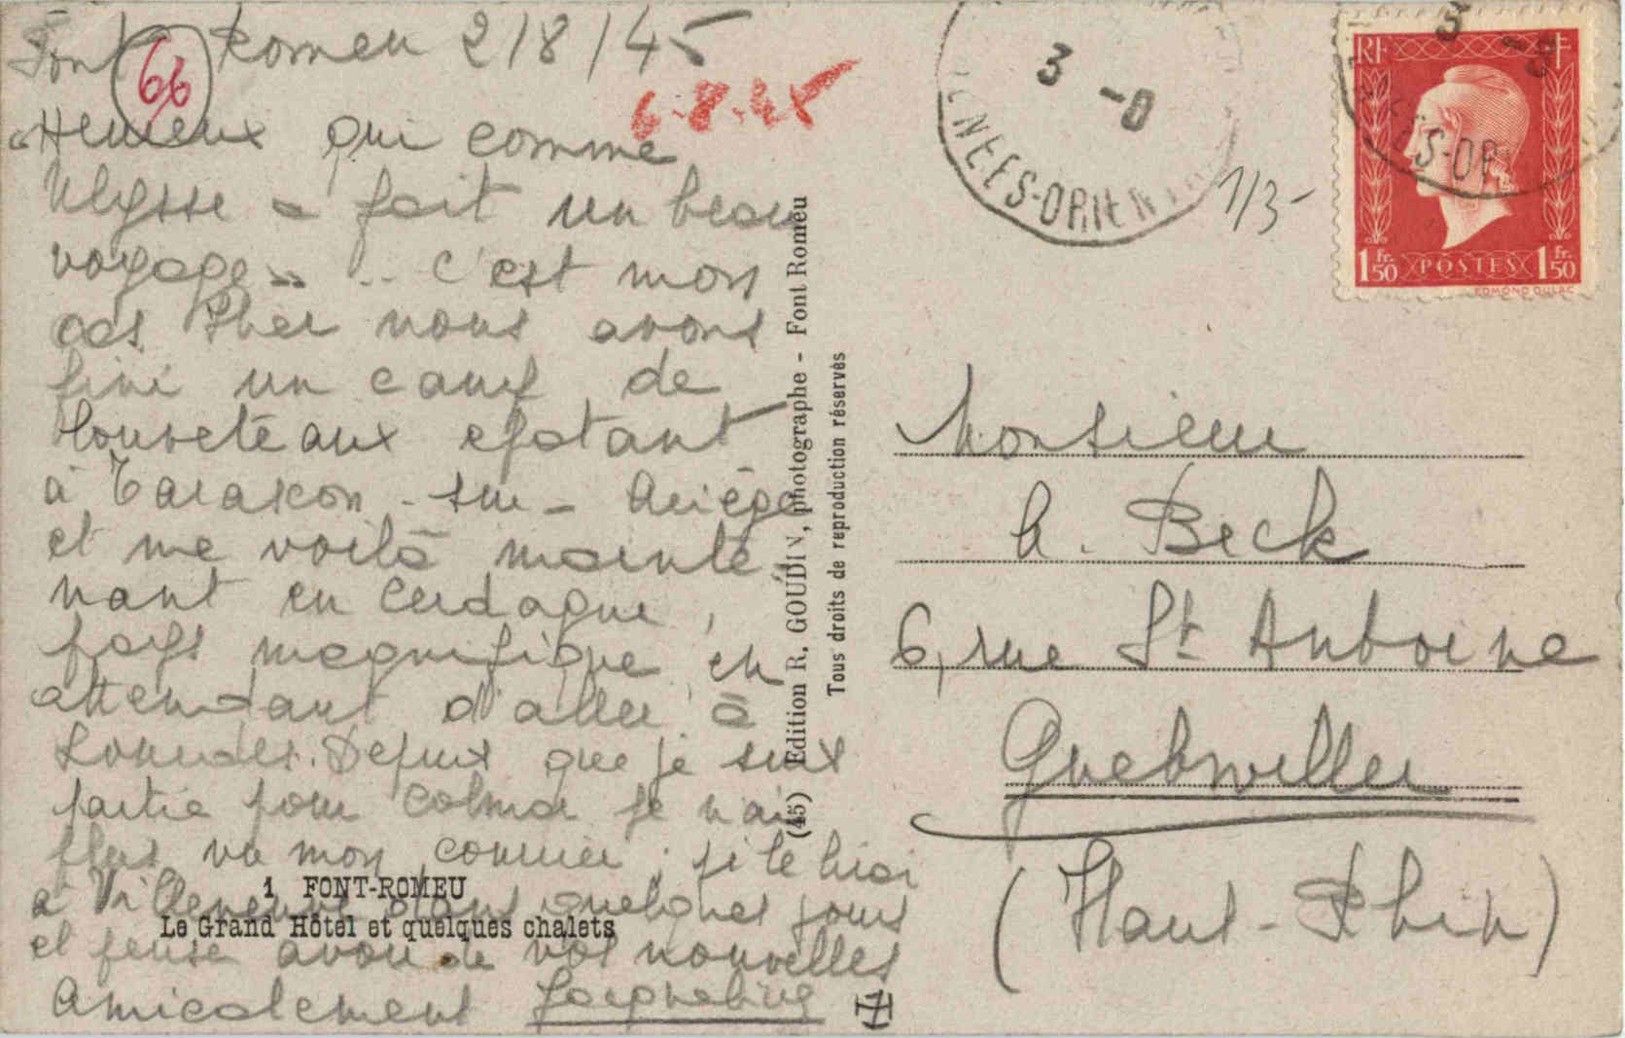 Font Romeu 2/8/45
66
6-8-45
"Heureux qui comme
Ulysse a fait un beau
voyage".. .. c'est mon
cas Hier nous avons
fini un camp de
louveteaux epatant
à Tarascon-sur-Ariège
et me voilà mainte-
nant en Cerdagne,
pays magnifique, en
attendant d'aller à
Lourdes. Depuis que je suis
partie pour Colmar je n'ai
plus vu mon courrier, je le lirai
à Villeneuve dans quelques jours
et pense avoir de vos nouvelles
Amicalement Jacqueline
1 FONT-ROMEU
Le Grand Hôtel et quelques chalets
(45) Edition R. GOUDIN, photographe - Font Romeu
Tous droits de reproduction réservés
3 -8
NEES-ORIENTA
1/3-
RF
1 Fr. 50 POSTES 1 Fr. 50
EDMOND DULAC
Monsieur
A. Beck
6, rue St Antoine
Guebwiller
(Haut-Rhin)